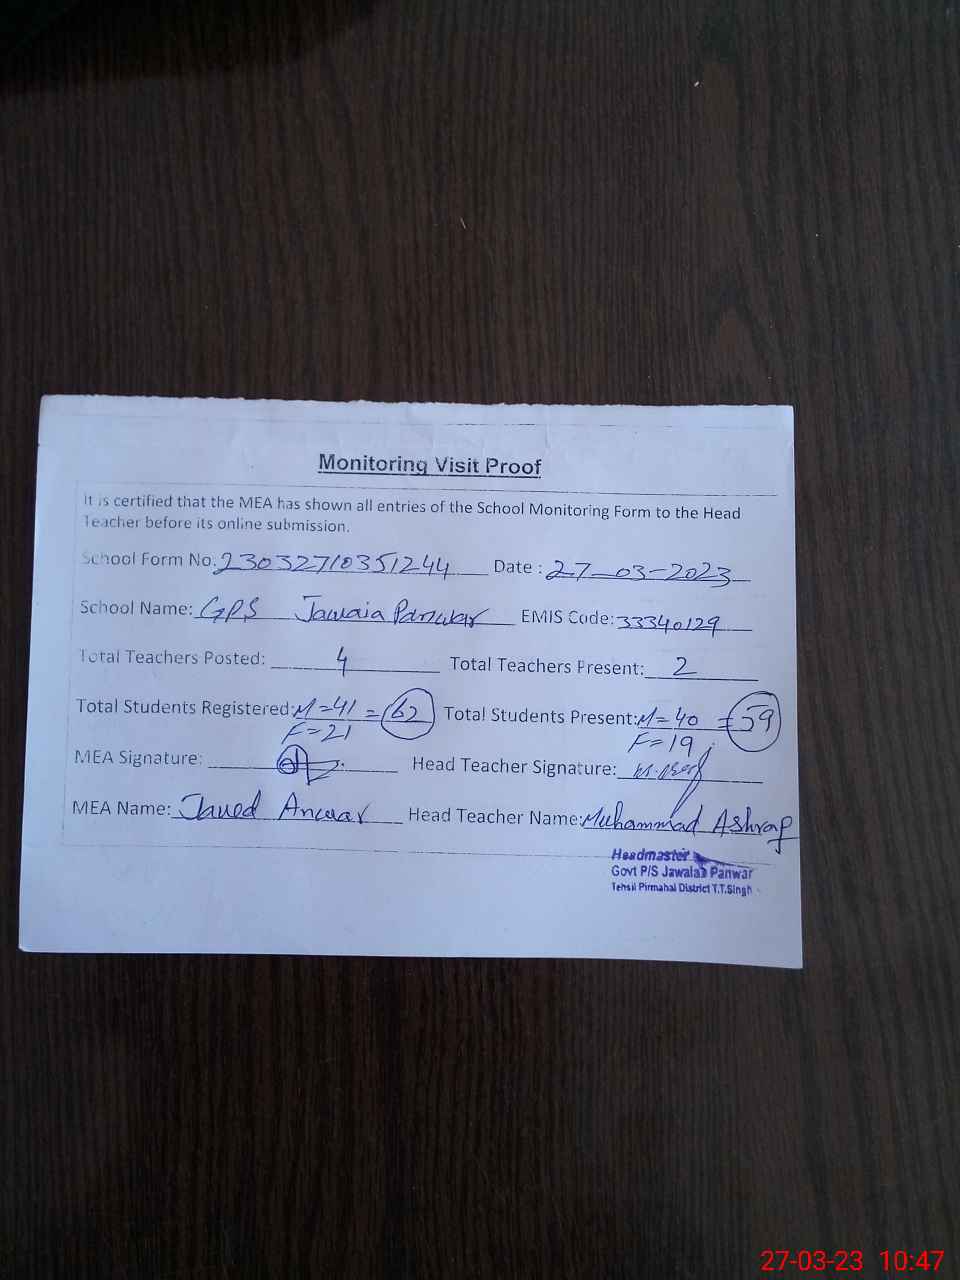 Monitoring Visit Proof
It is certified that the MEA has shown all entries of the School Monitoring Form to the Head
Teacher before its online submission.
School Form No: 23032710351244 Date : 27-03-2023
School Name: GPS Jawala Panwar EMIS Code: 33340129
Total Teachers Posted: 4 Total Teachers Present: 2
Total Students Registered: M=41 = 62 Total Students Present: M=40 = 59
F=21 F=19
MEA Signature: Head Teacher Signature:
MEA Name: Javed Anwar Head Teacher Name: Muhammad Ashraf
Headmaster
Govt P/S Jawala Panwar
Tehsil Pirmahal District T.T.Singh
27-03-23 10:47